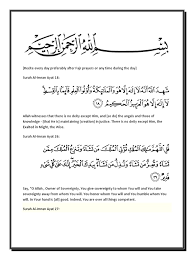 بِسْمِ اللَّهِ الرَّحْمَٰنِ الرَّحِيمِ
(Recite every day preferably after Fajr prayers or any time during the day)
Surah Al-Imran Ayat 18:
شَهِدَ اللَّهُ أَنَّهُ لَا إِلَٰهَ إِلَّا هُوَ وَالْمَلَائِكَةُ وَأُولُو الْعِلْمِ قَائِمًا بِالْقِسْطِ
لَا إِلَٰهَ إِلَّا هُوَ الْعَزِيزُ الْحَكِيمُ ﴿١٨﴾
Allah witnesses that there is no deity except Him, and [so do] the angels and those of
knowledge - [that He is] maintaining [creation] in justice. There is no deity except Him, the
Exalted in Might, the Wise.
Surah Al-Imran Ayat 26:
قُلِ اللَّهُمَّ مَالِكَ الْمُلْكِ تُؤْتِي الْمُلْكَ مَن تَشَاءُ وَتَنزِعُ الْمُلْكَ مِمَّن
تَشَاءُ وَتُعِزُّ مَن تَشَاءُ وَتُذِلُّ مَن تَشَاءُ بِيَدِكَ الْخَيْرُ إِنَّكَ عَلَىٰ كُلِّ
شَيْءٍ قَدِيرٌ ﴿٢٦﴾
Say, "O Allah, Owner of Sovereignty, You give sovereignty to whom You will and You take
sovereignty away from whom You will. You honor whom You will and You humble whom You
will. In Your hand is [all] good. Indeed, You are over all things competent.
Surah Al-Imran Ayat 27: